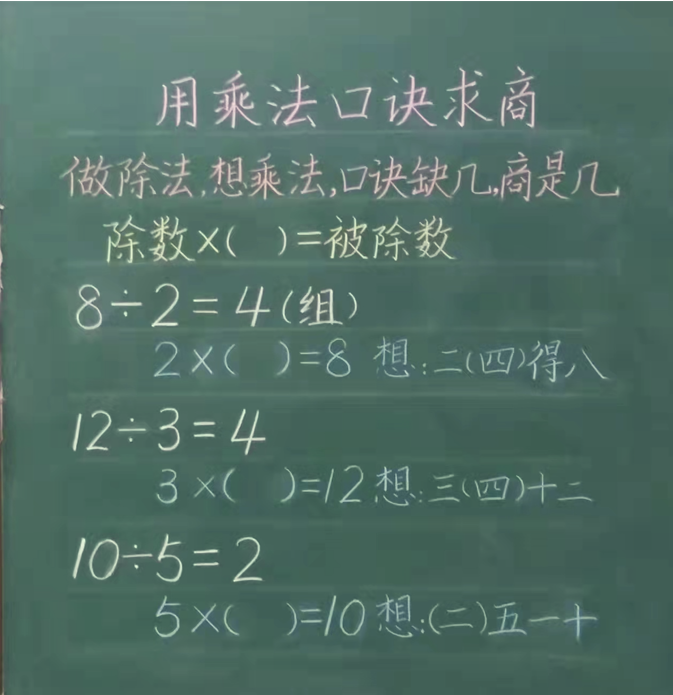 用乘法口诀求商
做除法,想乘法,口诀缺几,商是几
除数×( )=被除数
8÷2=4(组)
2×( )=8 想:二(四)得八
12÷3=4
3×( )=12 想:三(四)十二
10÷5=2
5×( )=10 想:(二)五一十